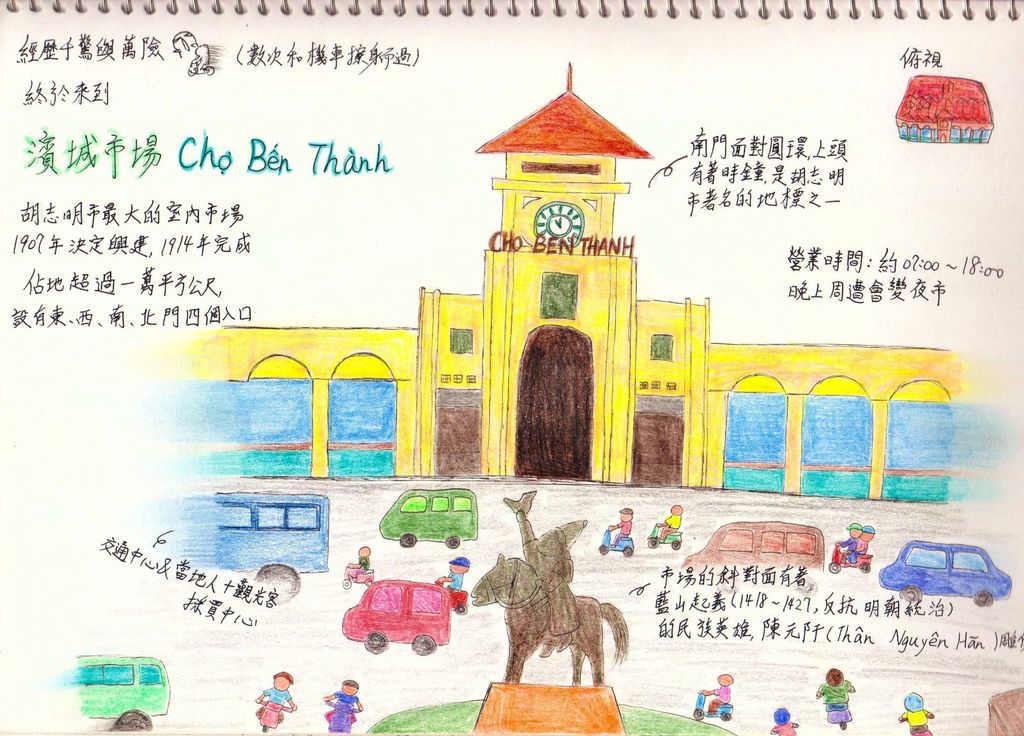 經歷千驚與萬險
(數次和機車擦身而過)
終於來到
濱城市場 Chợ Bến Thành
胡志明市最大的室內市場
1907年決定興建, 1914年完成
佔地超過一萬平方公尺,
設有東、西、南、北門四個入口
俯視
南門面對圓環,上頭
有著時鐘,是胡志明
市著名的地標之一
營業時間:約07:00~18:00
晚上周遭會變夜市
CHO BEN THANH
交通中心&當地人+觀光客
採買中心
市場的斜對面有著
藍山起義(1418~1427,反抗明朝統治)
的民族英雄,陳元扞(Thân Nguyên Hãn)